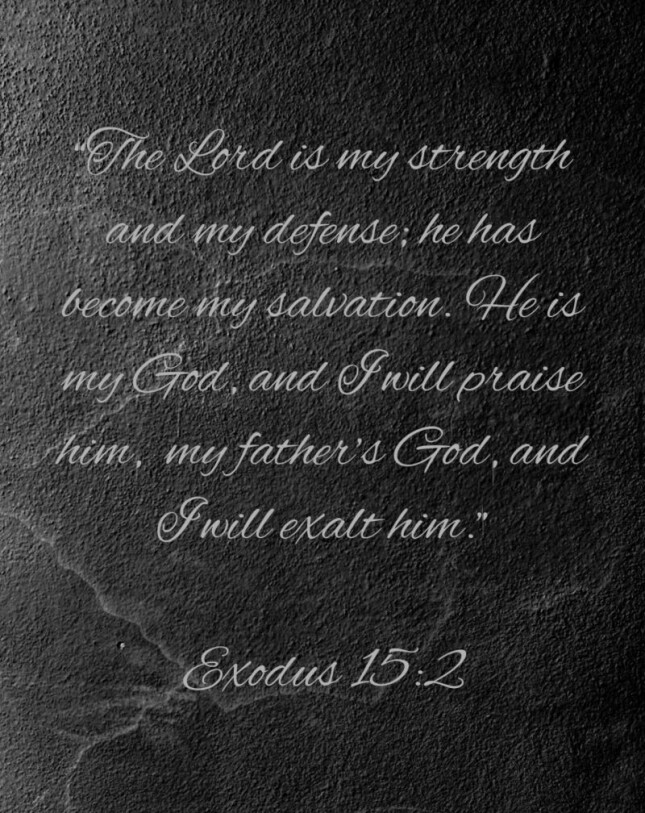 “The Lord is my strength
and my defense; he has
become my salvation. He is
my God, and I will praise
him, my father’s God, and
I will exalt him.”
Exodus 15:2